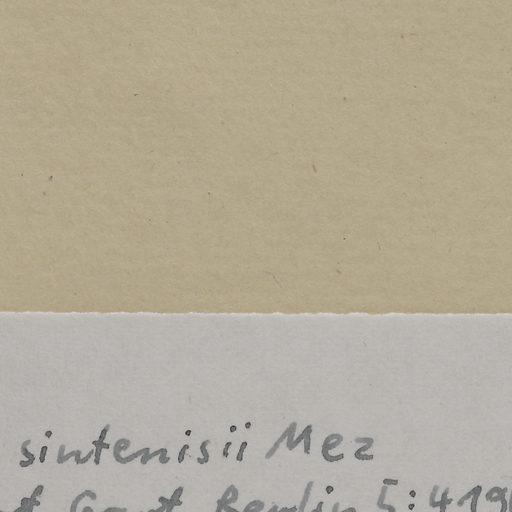 sintenisii Mez
Gart Berlin 5:419